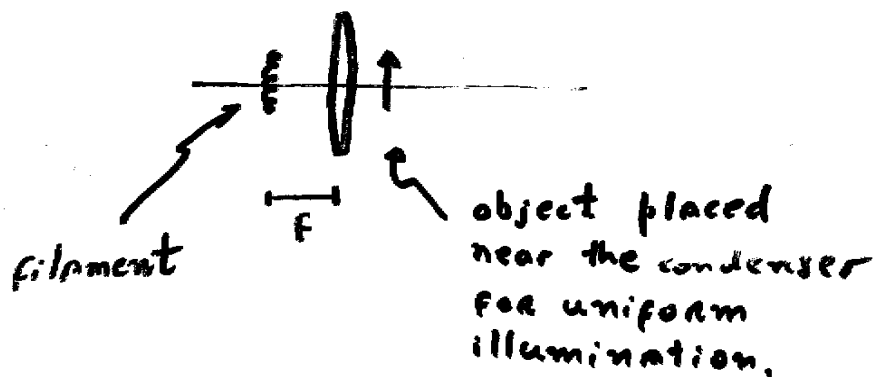 f
filament
object placed
near the condenser
for uniform
illumination.